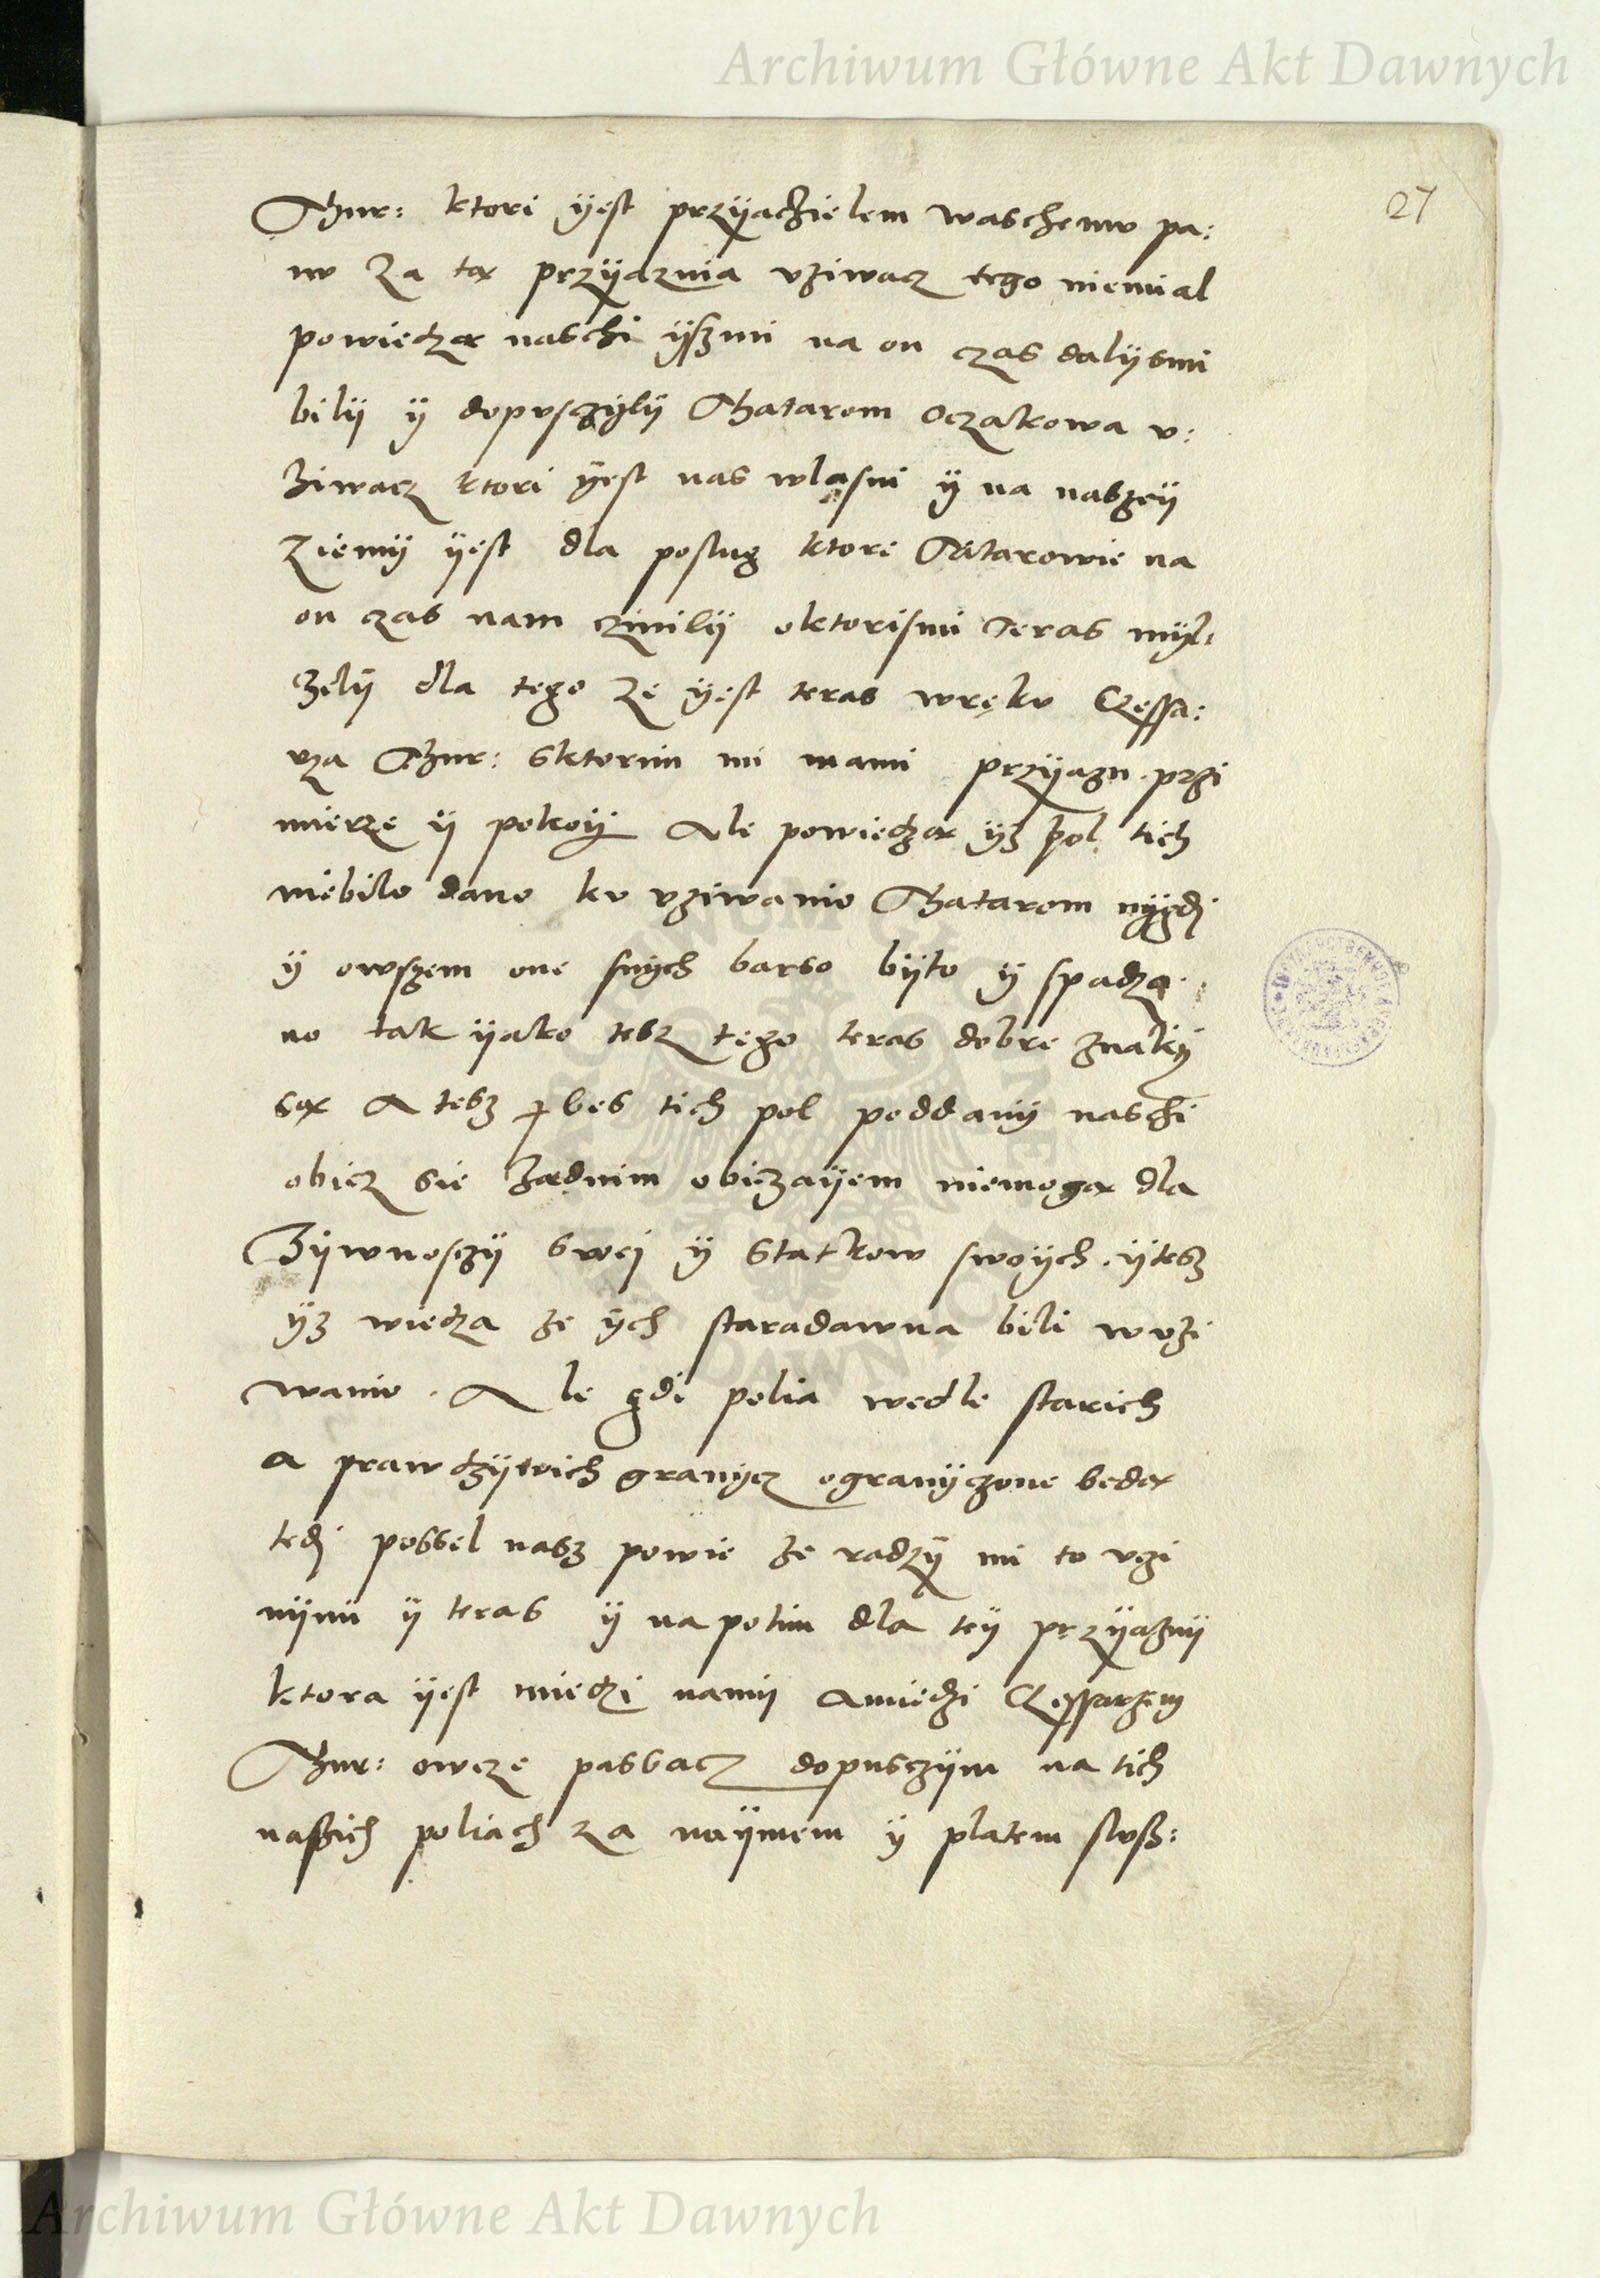 Archiwum Główne Akt Dawnych
27
Thur: ktori yest przyaczielem waschemu pa:
nu za ta przyaznia uziwacz tego niemial
powiedza naschi yszmi na on czas dalysmi
bily y dopusczyly Thatarom Oczakowa u:
ziwacz ktori yest nas wlasni y na naszey
Ziemy yest dla poslug ktore Tatarowie na
on czas nam czinily oktorismi teras myl:
czely dla tego ze yest teras wręku Czessa:
rza Thur: sktorim mi mami przyazn przi
mierze y pokoy Ale powiedza yz pol tich
niebilo dano ku uziwaniu Thatarom nygdj
y owszem one snych barso byto y spadza
no tak yako tesz tego teras dobre znaky
sa A tesz bes tich pol poddany naschi
obicz sie zadnim obiczayem niemoga dla
Zywnosczy swej y statkow swoych ytesz
yz wiedza ze ych staradawna bili wuzi
waniu. Ale gdi polia wedle starich
a prawdzywich granycz ogranyczone beda
tedj possel nasz powie ze radzy mi to uczi
nymi y teras y napotim dla tey przyazny
ktora yest miedzi namy Amiedzi Czessarzem
Thur: owcze passacz dopusczym na tich
naszich poliach za naymem y platem slusz:
Archiwum Główne Akt Dawnych